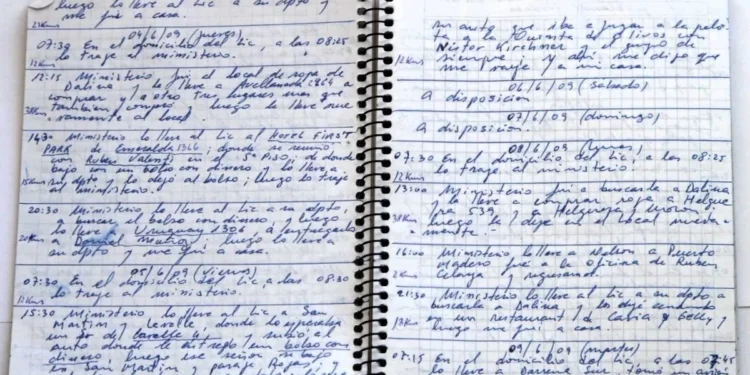 luego lo lleve al Lic a su dpto y
me fui a casa.
04/6/09 (jueves)
07:30 En el domicilio del Lic, a las 08:25
12Kms lo traje al ministerio.
12:15 Ministerio fui el local de ropa de
Dalina y la lleve a Avellaneda
comprar y a otro tres lugares mas que
tambien compro y luego la lleve nue-
vamente al local.
Ministerio lo lleve al Lic al HOTEL FIRST
PARK de Esmeralda 1366; donde se reunió
con Ruben Valenti en el 5º PISO; de donde
bajo con un bolso con dinero, lo lleve a
15Kms su dpto y lo dejó al bolso; luego lo traje
al ministerio.
20:30 Ministerio lo lleve al Lic a su dpto,
a buscar el bolso con dinero y luego
lo lleve a Uruguay 1306, a entregarlo
20Kms a Daniel Muñoz, luego lo lleve a
su dpto y me fui a casa.
05/6/09 (viernes)
07:30 En el domicilio del Lic a las 08:30
lo traje al ministerio.
15:30 Ministerio lo lleve al Lic a San
Martin y Lavalle, donde lo esperaba
un Sr de Lavalle y subió al
auto donde le entregó un bolso con
dinero, luego ese señor se bajo
en San Martin y paraje Rojas, y
que iba a jugar a la pelo-
ta a la Quinta de Olivos con
Néstor Kirchner el grupo de
12Kms siempre y ahi me dijo que
me traje a mi casa.
06/6/09 (sabado)
A disposicion
07/6/09 (domingo)
A disposicion.
08/6/09 (lunes)
07:30 En el domicilio del Lic, a las 08:25
12Kms lo traje al ministerio.
13:00 Ministerio fui a buscarla a Dalina
y la lleve a comprar ropa a Helgue
ra 539 a Helguera y Moron
luego la deje en el local nueva-
mente.
16:00 Ministerio lo lleve a Nelson a Puerto
Madero fue a la oficina de Ruben
2Kms y regresamos.
21:30 Ministerio lo lleve al Lic a su dpto a
buscarla a Dalina y los deje cenando
en un restaurant de Cabia y Gelly y
13Kms luego me fui a casa.
09/6/09 (martes)
07:15 En el domicilio del Lic, a las 07:45
lo lleve a Barrena Sur, tomó un avión